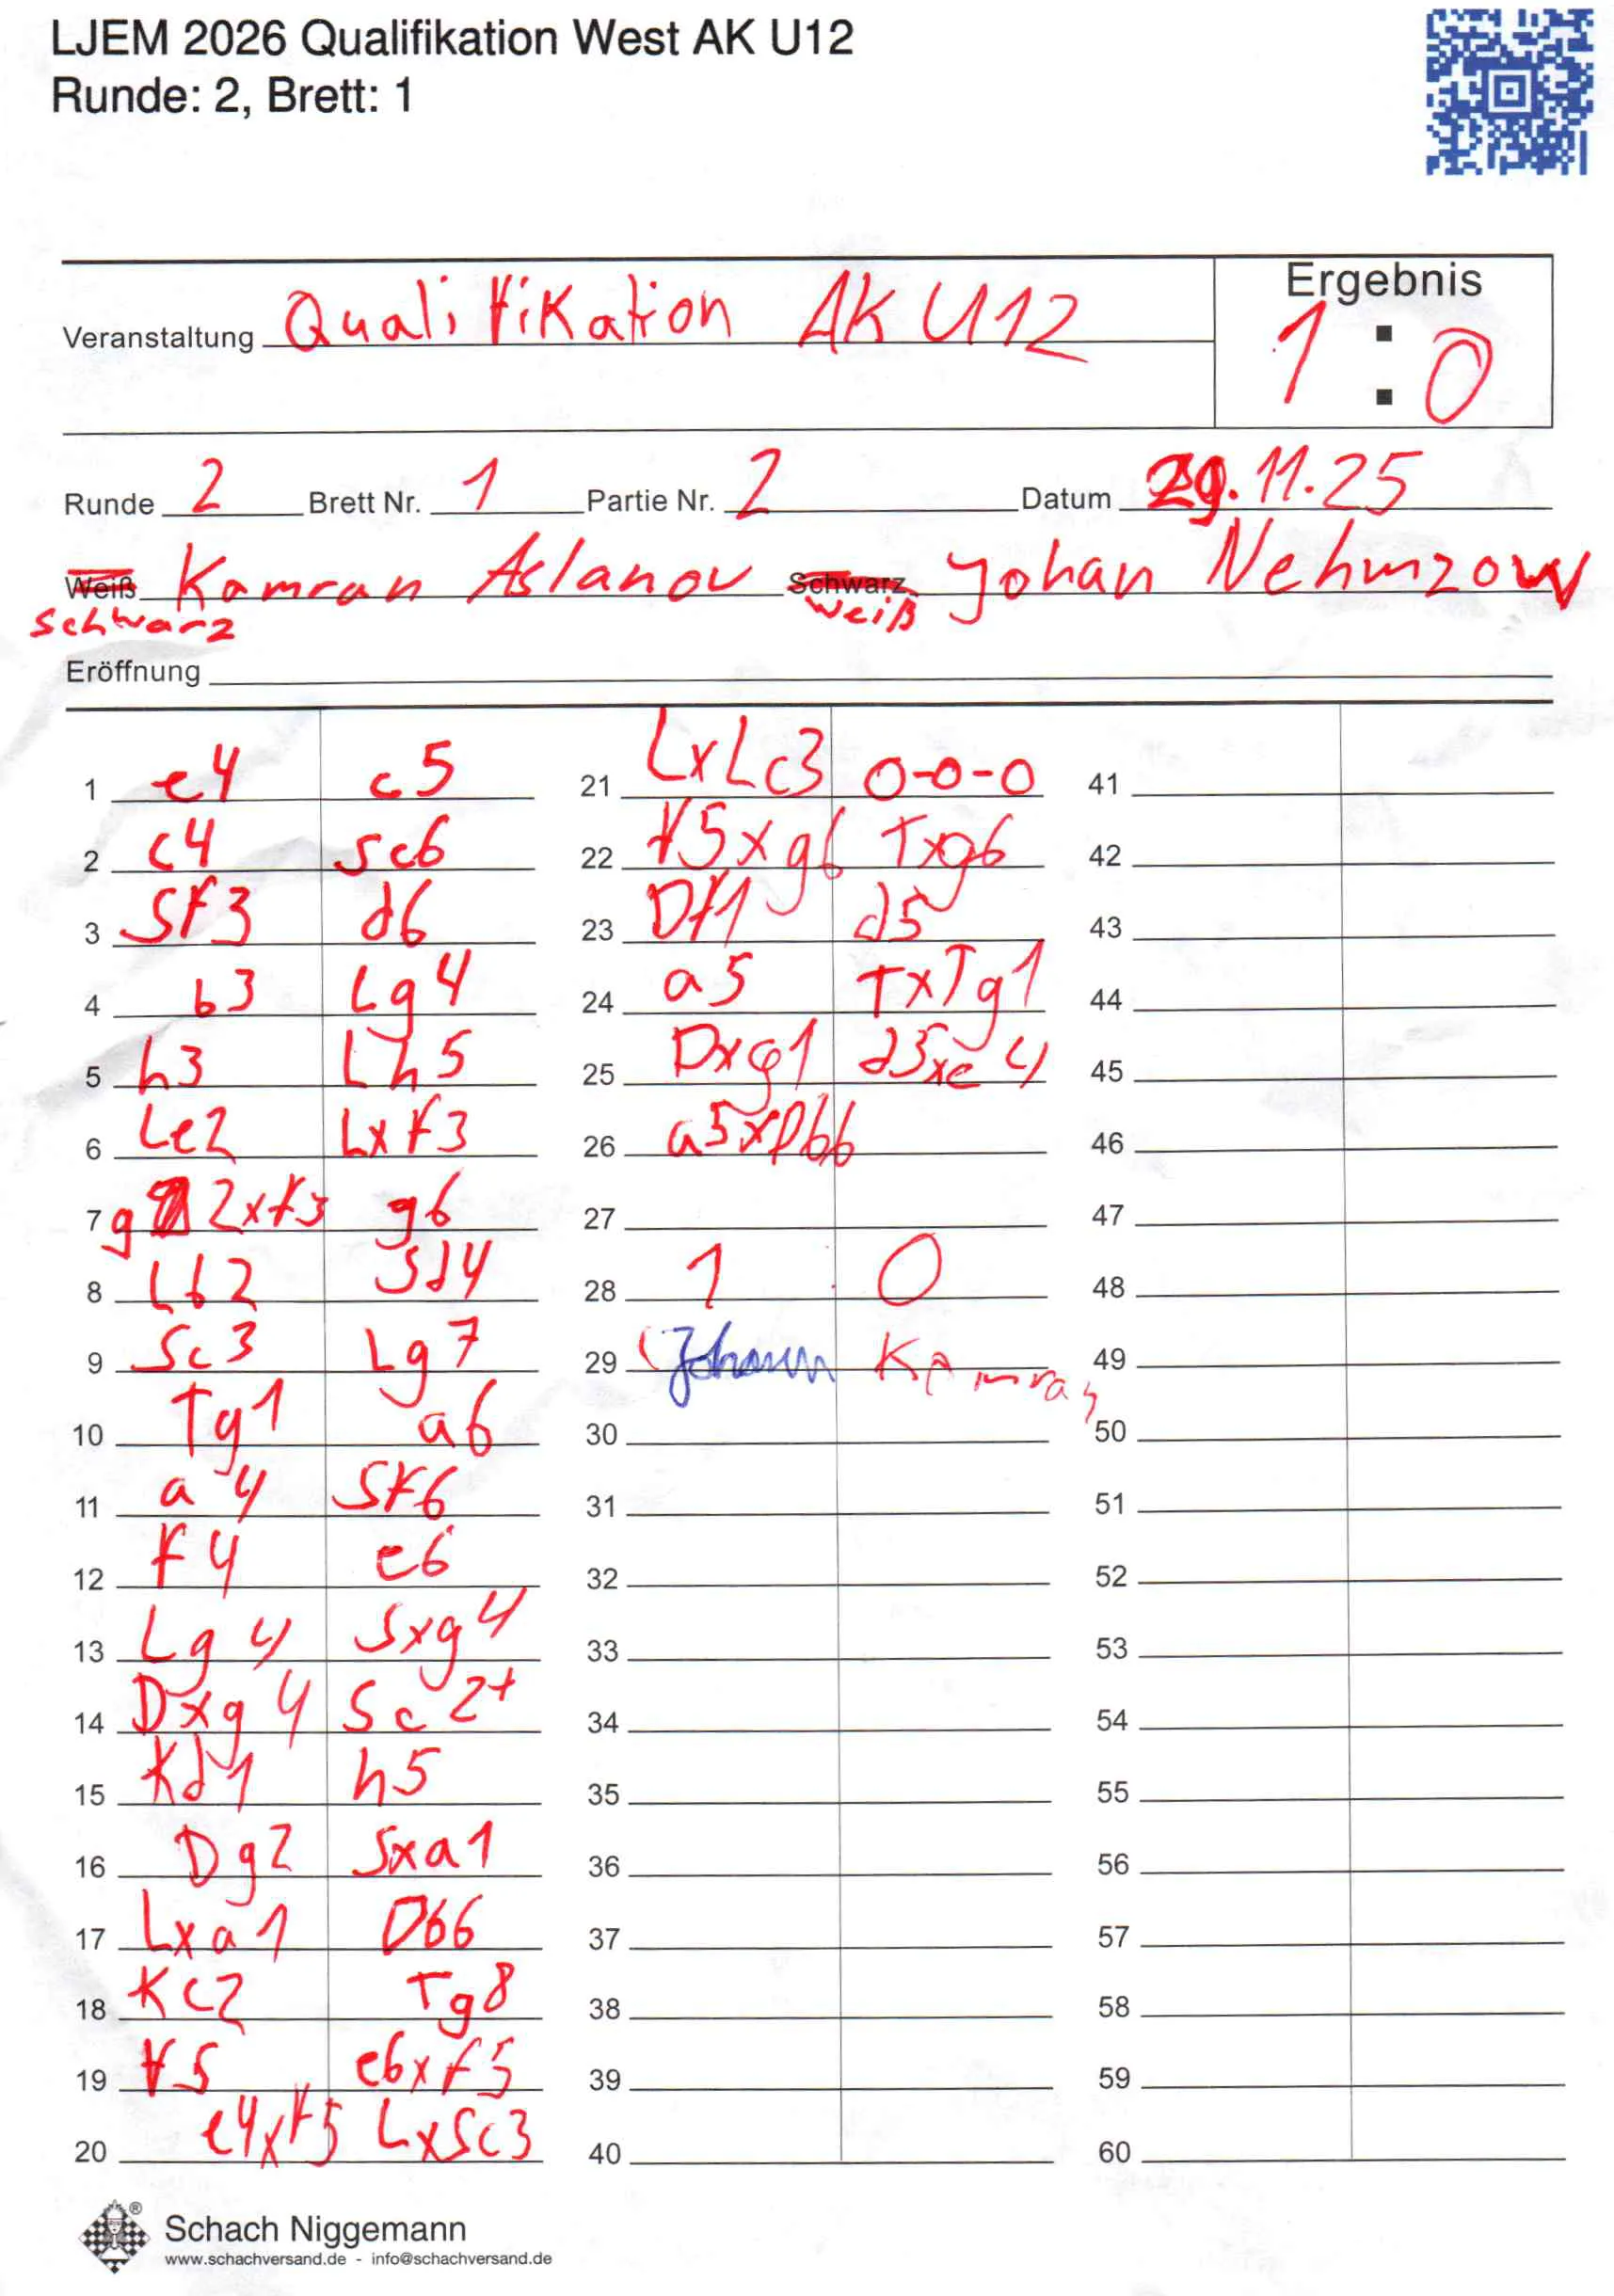 LJEM 2026 Qualifikation West AK U12
Runde: 2, Brett: 1
Ergebnis
Veranstaltung Qualifikation AK U12
1 : 0
Runde 2 Brett Nr. 1 Partie Nr. 2 Datum 29.11.25
Weiß Kamran Aslanov Schwarz Johan Nehmzow
Schwarz weiß
Eröffnung
1 e4 c5
2 c4 Sc6
3 Sf3 d6
4 b3 Lg4
5 h3 Lh5
6 Le2 Lxf3
7 g2xf3 g6
8 Lb2 Sd4
9 Sc3 Lg7
10 Tg1 a6
11 a4 Sf6
12 f4 e6
13 Lg4 Sxg4
14 Dxg4 Sc2+
15 Kd1 h5
16 Dg2 Sxa1
17 Lxa1 Db6
18 Kc2 Tg8
19 f5 e6xf5
20 e4xf5 LxSc3
21 LxLc3 0-0-0
22 f5xg6 Txg6
23 Df1 d5
24 a5 TxTg1
25 Dxg1 d5xe4
26 a5xDb6
27
28 1 0
29 Johann Kamran
30
31
32
33
34
35
36
37
38
39
40
41
42
43
44
45
46
47
48
49
50
51
52
53
54
55
56
57
58
59
60
Schach Niggemann
www.schachversand.de - info@schachversand.de